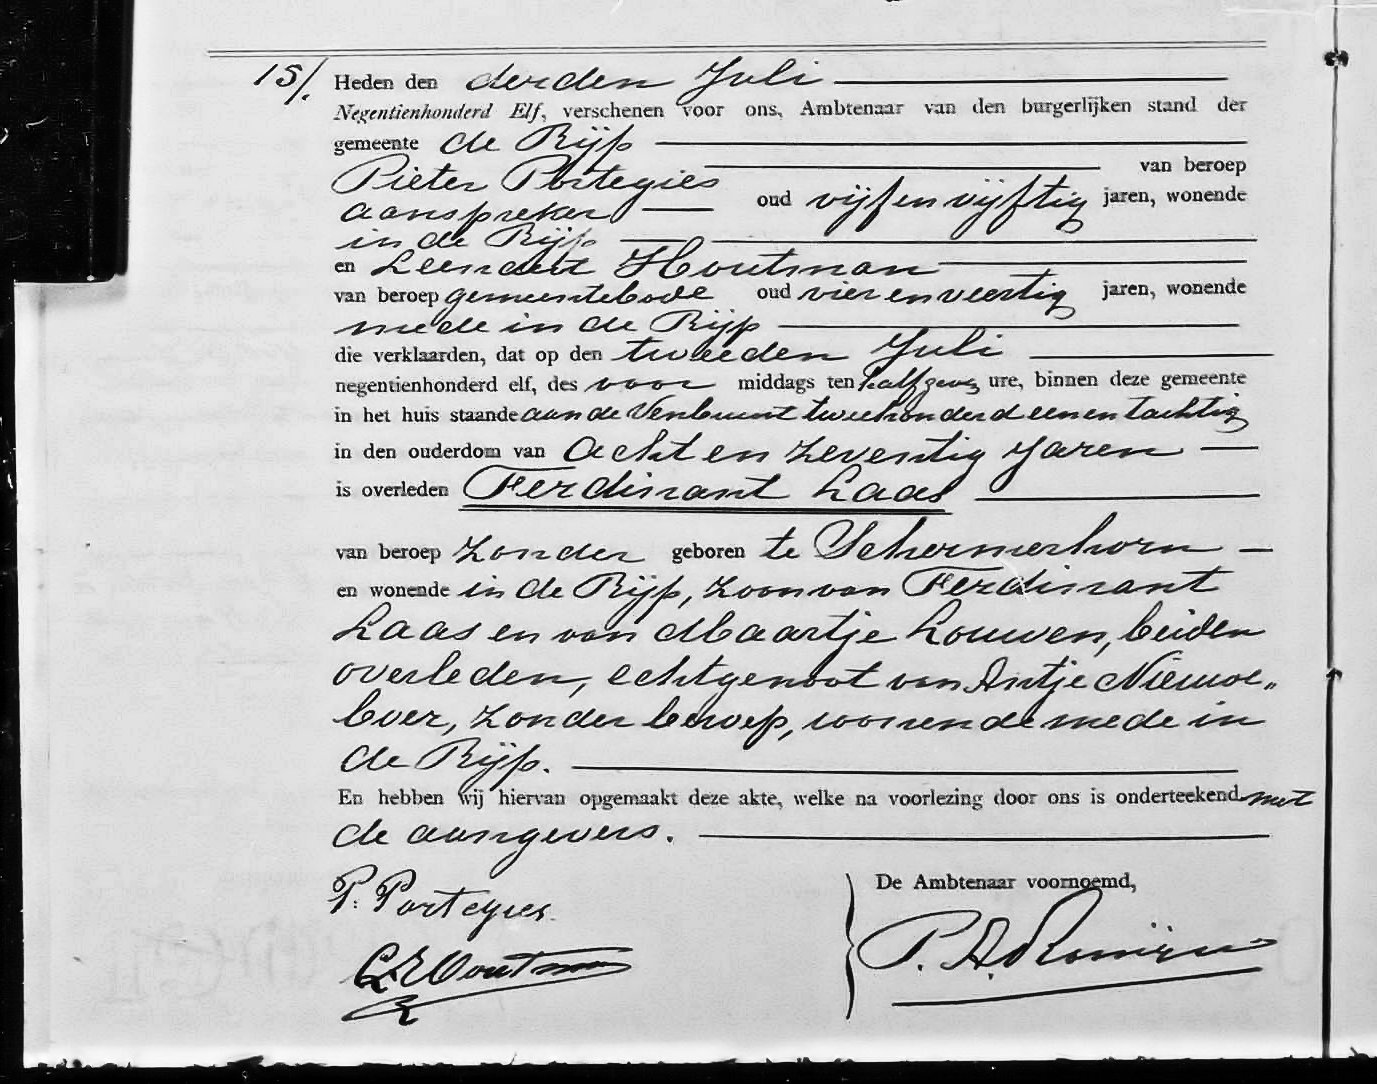 15/. Heden den derden Juli
Negentienhonderd Elf, verschenen voor ons, Ambtenaar van den burgerlijken stand der
gemeente de Rijp
Pieter Portegies van beroep
aanspreker oud vijf en vijftig jaren, wonende
in de Rijp
en Leendert Houtman
van beroep gemeentebode oud vier en veertig jaren, wonende
mede in de Rijp
die verklaarden, dat op den tweeden Juli
negentienhonderd elf, des voor middags ten half zeven ure, binnen deze gemeente
in het huis staande aan de Venbuurt tweehonderd een en tachtig
in den ouderdom van acht en zeventig jaren
is overleden Ferdinant Laas
van beroep zonder geboren te Schermerhorn
en wonende in de Rijp, zoon van Ferdinant
Laas en van Maartje Louwen, beiden
overleden, echtgenoot van Antje Nieuwe„
boer, zonder beroep, wonende mede in
de Rijp.
En hebben wij hiervan opgemaakt deze akte, welke na voorlezing door ons is onderteekend met
de aangevers.
De Ambtenaar voornoemd,
P. Portegies.
L. Houtman
P. A.